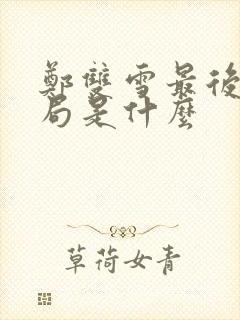 鄭雙雪最後
局是什麼
草荷女青